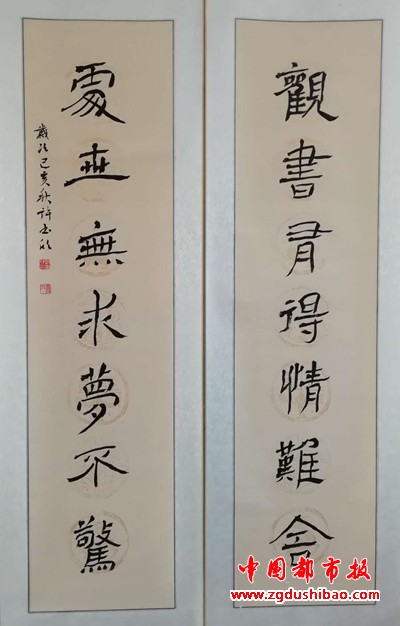 觀書有得情難舍
處世無求夢不驚
歲次己亥秋許
中国都市报
www.zgdushibao.com